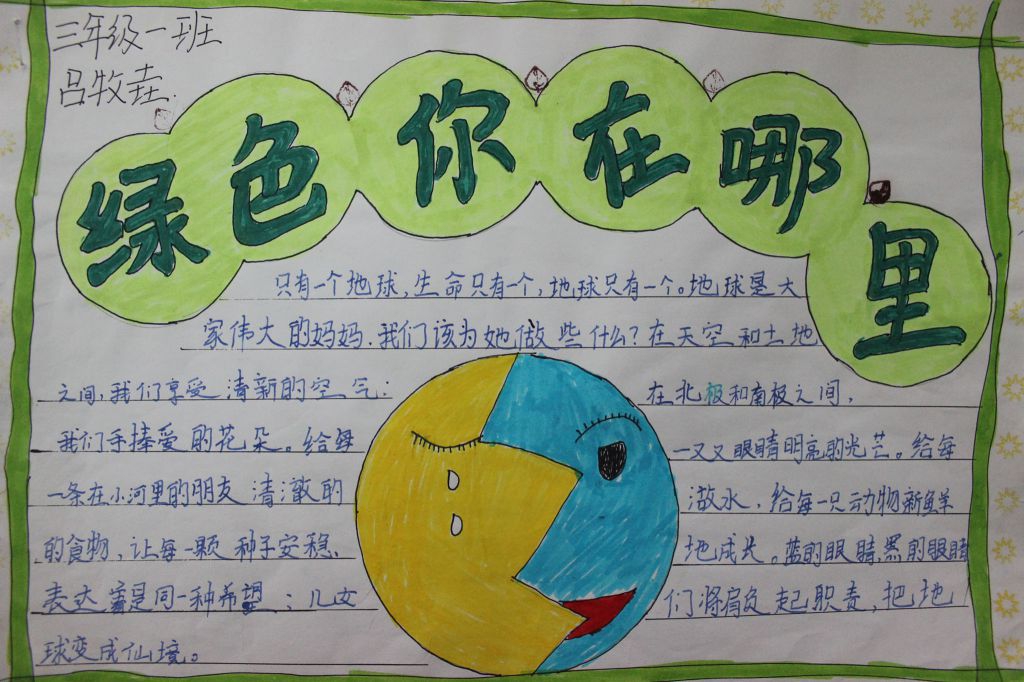 三年级一班
吕牧垚
绿色你在哪里
只有一个地球,生命只有一个,地球只有一个。地球是大
家伟大的妈妈.我们该为她做些什么?在天空和土地
之间,我们享受清新的空气: 在北极和南极之间,
我们手捧爱的花朵。给每 一又又眼睛明亮的光芒。给每
一条在小河里的朋友清澈的 澈水,给每一只动物新鲜
的食物,让每一颗种子安稳、 地成长。蓝的眼睛,黑的眼睛
表达着是同一种希望;儿女 们将肩负起职责,把地
球变成仙境。